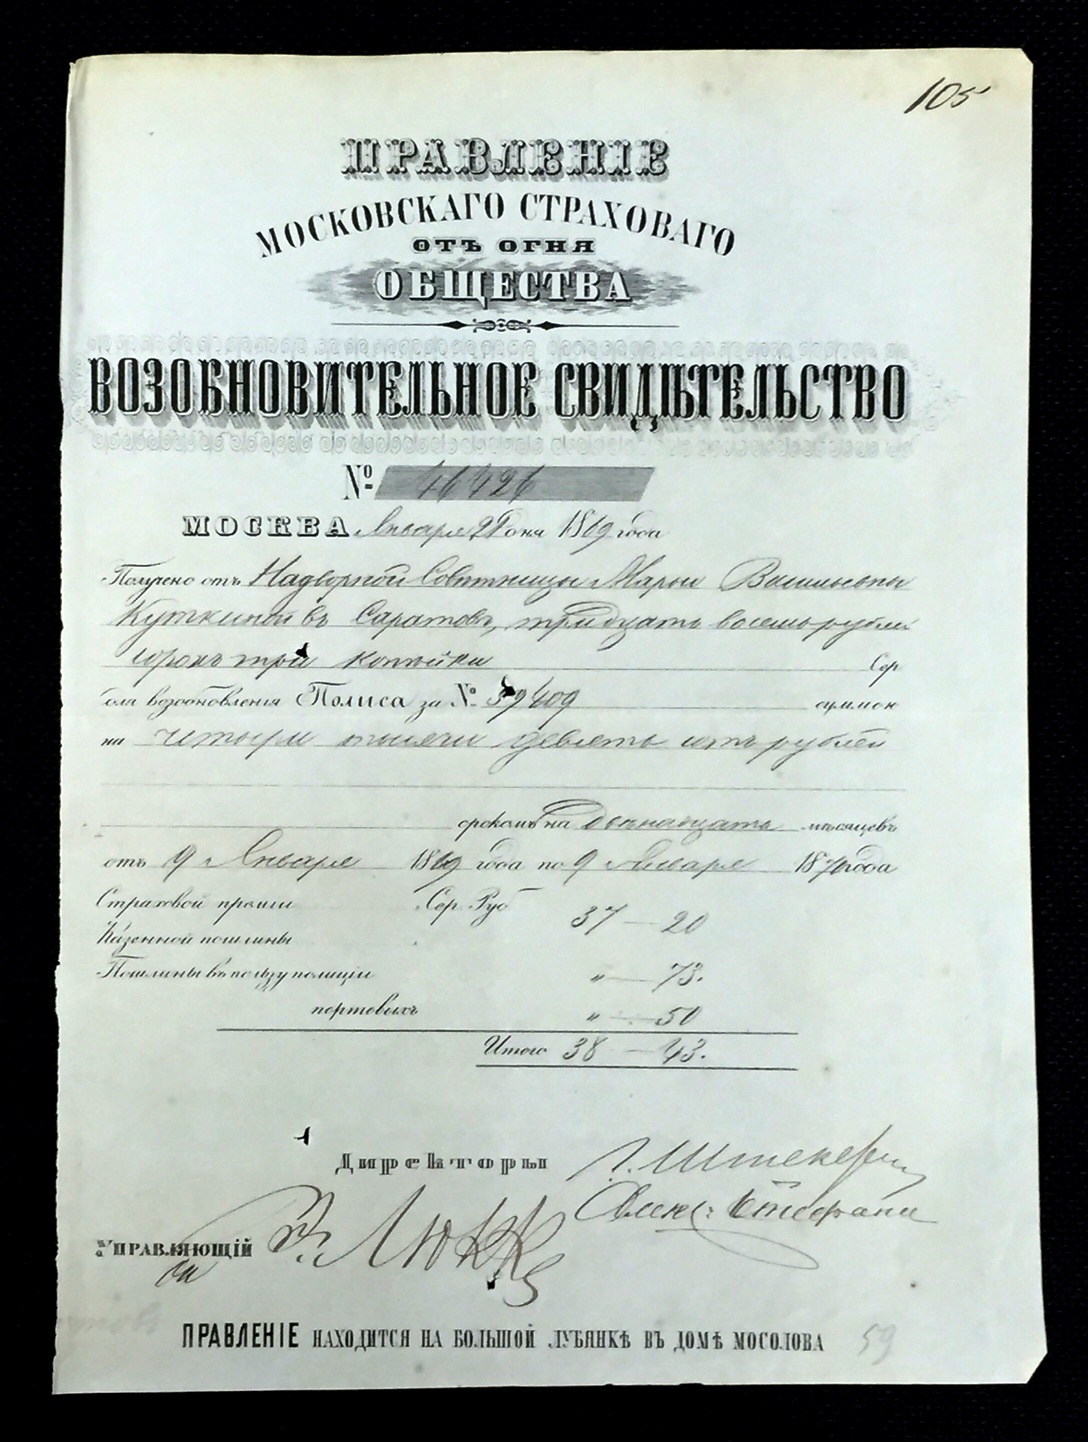 105
ПРАВЛЕНІЕ
МОСКОВСКАГО СТРАХОВАГО
ОТЪ ОГНЯ
ОБЩЕСТВА
ВОЗОБНОВИТЕЛЬНОЕ СВИДѢТЕЛЬСТВО
№ 46426
МОСКВА Января дня 1869 года
Получено отъ Надворной Совѣтницы Марьи
Куткиной въ Саратовѣ, тридцать восемь рубли
сорокъ три копѣйки Сер
для возобновленія Полиса за № 39409 суммою
на четыре тысячи девять сотъ рублей
срокомъ на двѣнадцать мѣсяцевъ
отъ 9 Января 1869 года по 9 Января 1870 года
Страховой преміи Сер. Руб 37 — 20
Казенной пошлины
Пошлины въ пользу полиціи „ — 73.
портовыхъ „ — 50
Итого 38 — 43.
Директоры
Алекс: Стефани
Управляющій Люкке
ПРАВЛЕНІЕ НАХОДИТСЯ НА БОЛЬШОЙ ЛУБЯНКѢ ВЪ ДОМѢ МОСОЛОВА
59